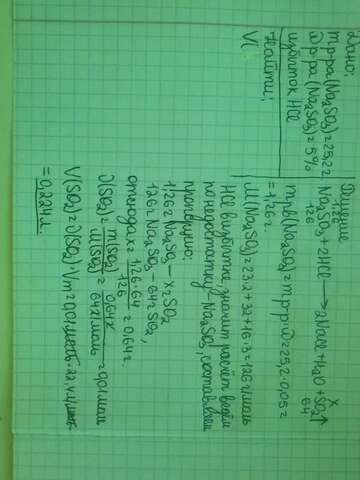 Дано:
m р-ра(Na₂SO₃)=25,2 г
ω р-ра(Na₂SO₃)=5%
избыток HCl
Найти:
V(
Решение
1,26 x
Na₂SO₃+2HCl ⟶ 2NaCl+H₂O+SO₂↑
126 64
m рв(Na₂SO₃)=m р-р·ω=25,2·0,05=
=1,26 г
M(Na₂SO₃)=23·2+32+16·3=126 г/моль
HCl в избытке, значит расчёт ведём
по недостатку: Na₂SO₃, составляем
пропорцию:
1,26 г Na₂SO₃ — x г SO₂
126 г Na₂SO₃ — 64 г SO₂,
отсюда x= 1,26·64/126 =0,64 г.
ν(SO₂)= m(SO₂)/M(SO₂) = 0,64 г/64 г/моль =0,01 моль
V(SO₂)=ν(SO₂)·Vm=0,01 моль·22,4 л/моль
=0,224 л.